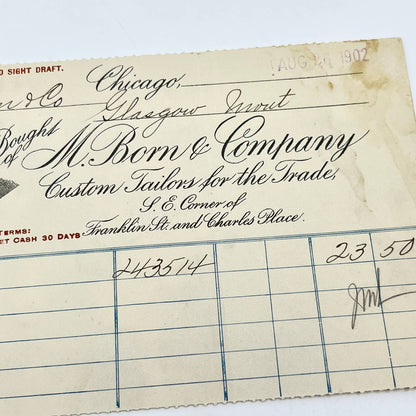 SIGHT DRAFT.
Chicago,
AUG 1902
& Co Glasgow Mont
Bought
of
M. Born & Company
Custom Tailors for the Trade,
S. E. Corner of
Franklin St. and Charles Place.
TERMS:
CASH 30 DAYS
243514 23 50